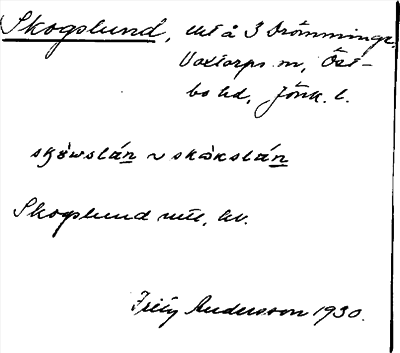 Skogslund, utl å 3 Drömminge,
Voxtorps sn, Öst-
bo hd, Jönk. l.
skówslán ~ skåkslán
Skogslund utl, kv.
Fritz Andersson 1930.